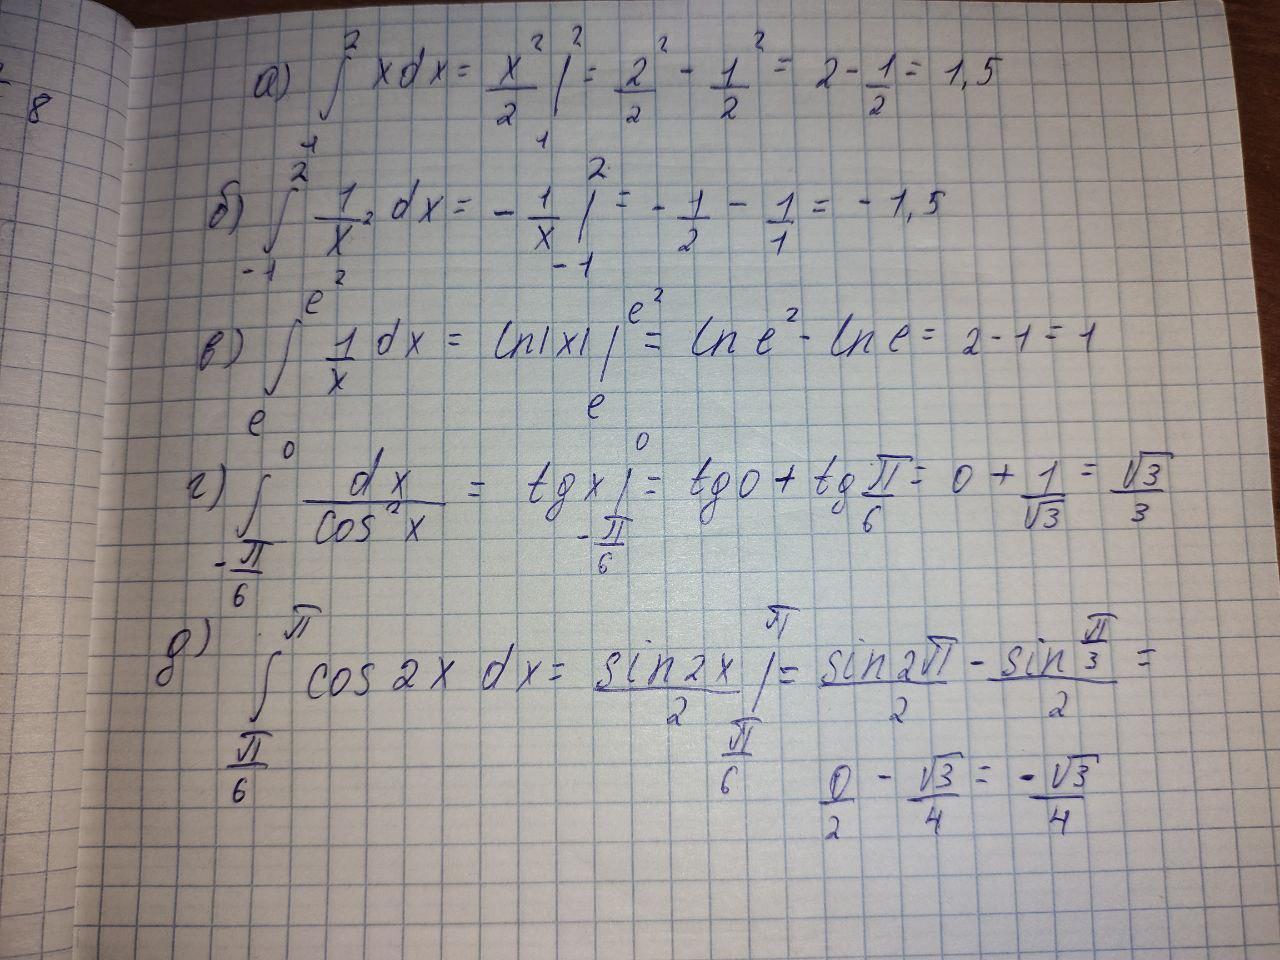 8
а) ∫₁² x dx = x²/2 |₁² = 2²/2 - 1²/2 = 2 - 1/2 = 1,5
б) ∫₋₁² 1/x² dx = - 1/x |₋₁² = - 1/2 - 1/1 = - 1,5
в) ∫ₑ^(e²) 1/x dx = ln|x| |ₑ^(e²) = ln e² - ln e = 2 - 1 = 1
г) ∫_(-π/6)^0 dx/cos²x = tg x |_(-π/6)^0 = tg 0 + tg π/6 = 0 + 1/√3 = √3/3
д) ∫_(π/6)^π cos 2x dx = sin 2x/2 |_(π/6)^π = sin 2π/2 - sin π/3/2 =
0/2 - √3/4 = - √3/4